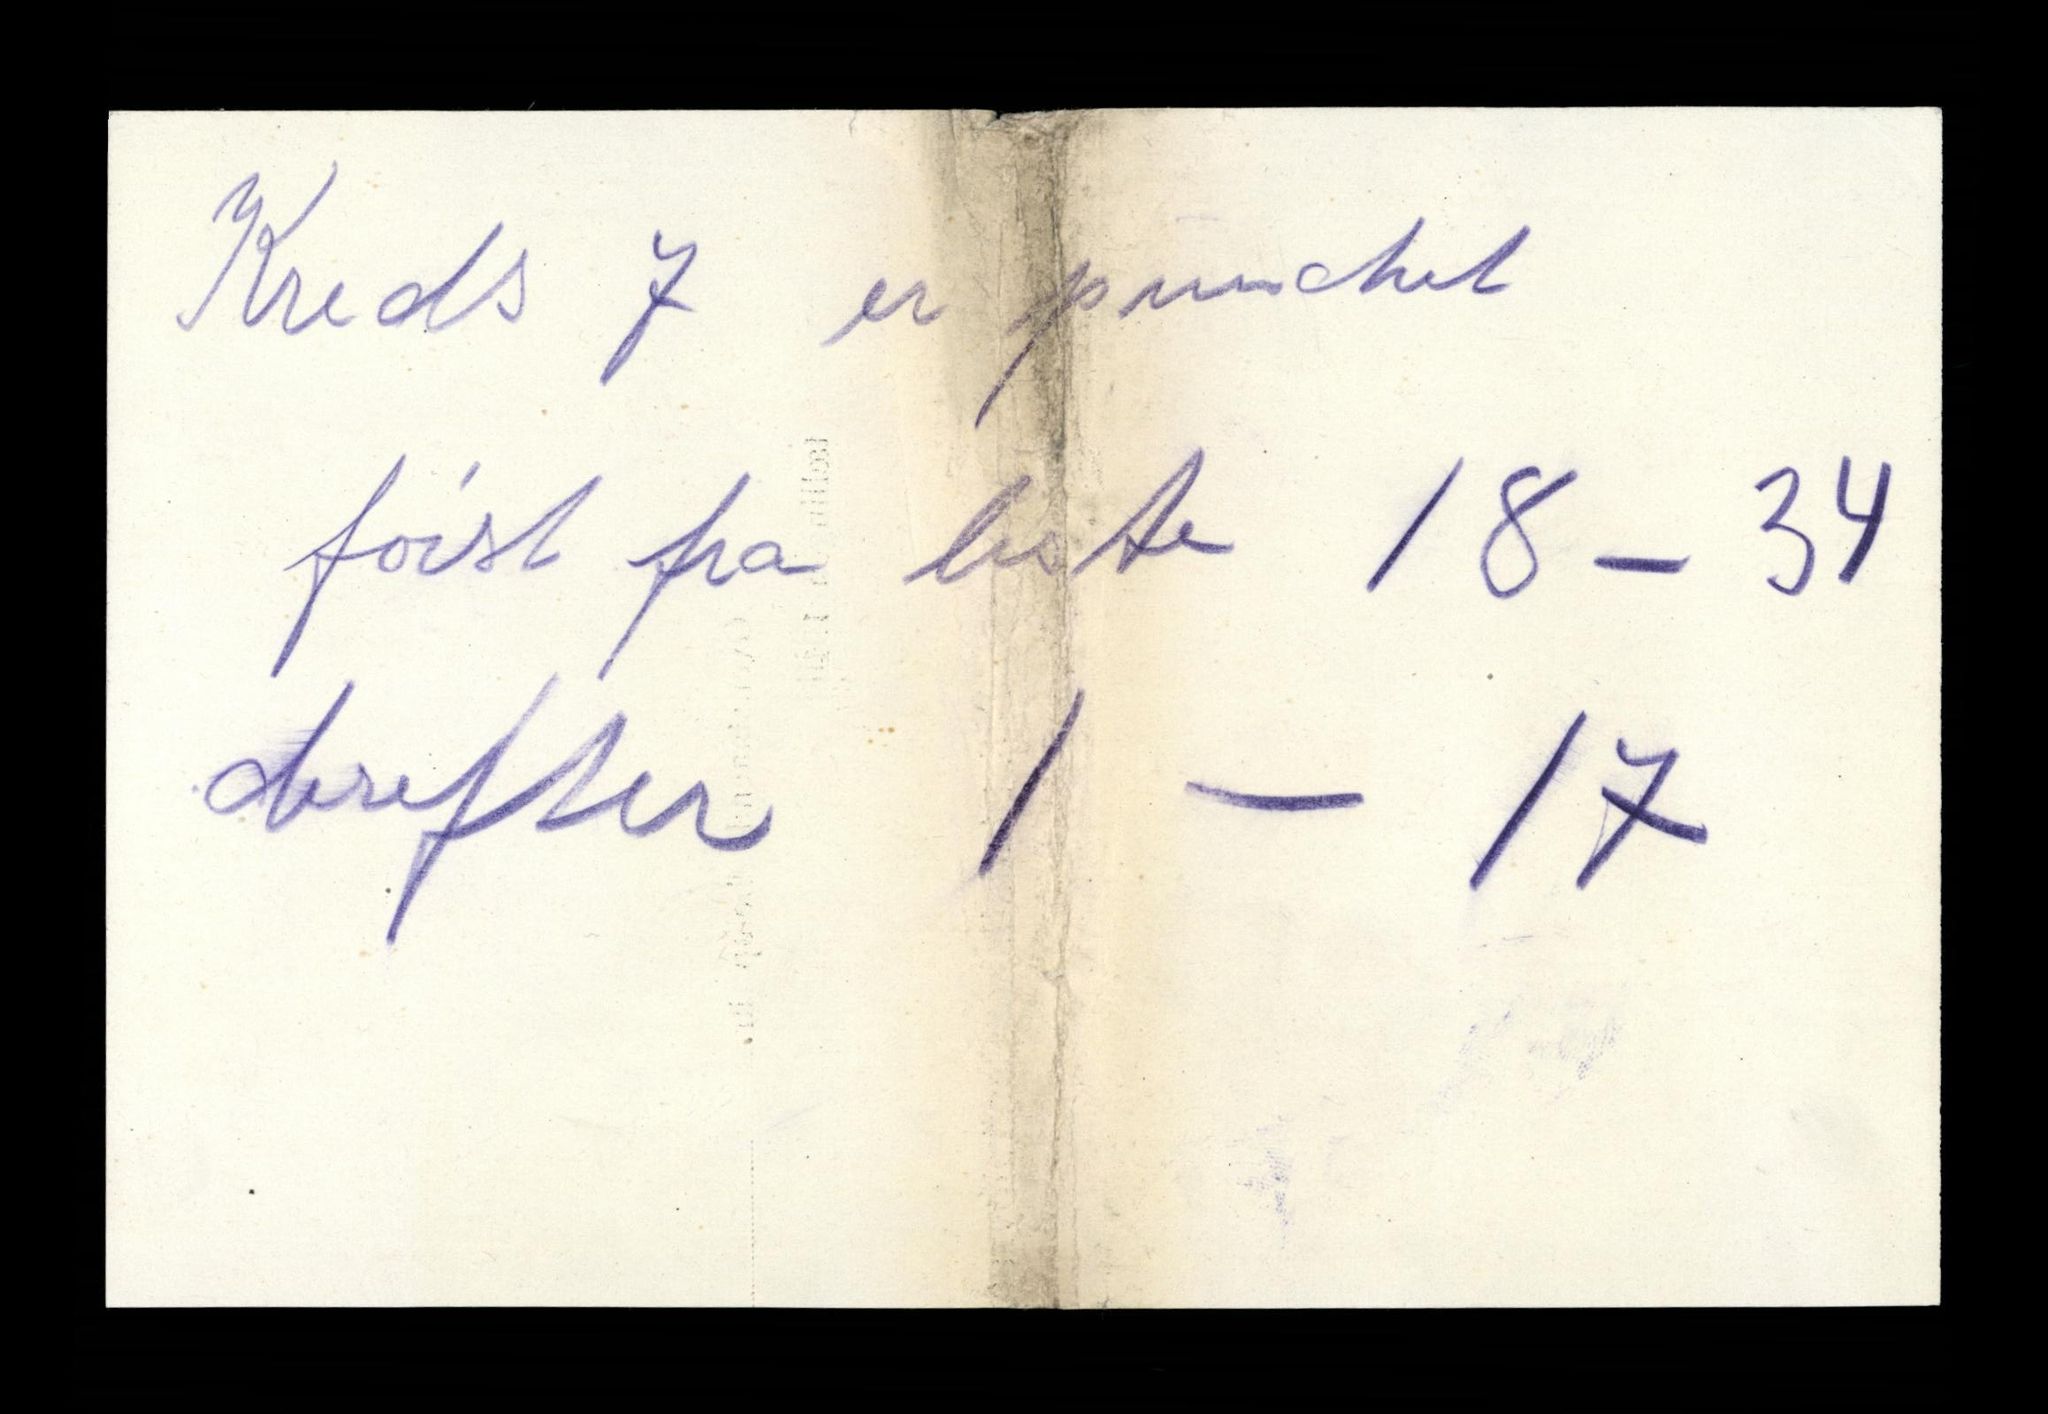 Kreds 7 er punchet
först fra liste 18 – 34
derefter 1 – 17